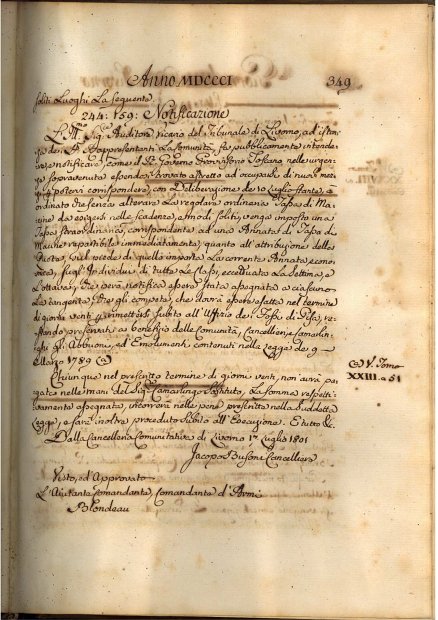 Anno MDCCCI 349
soliti Luoghi La seguente
244: 159: Notificazione
L'Ill.mo Sig.re Auditore Vicario del Tribunale di Livorno, ad istan-
za dei SS. Rappresentanti La Comunità, fa pubblicamente intende-
re, e notificare, Come il Sr. Governo Provvisorio Toscano nelle urgen-
ze sopravvenute essendosi trovato astretto ad occuparsi di nuovi mezzi
per potervi corrispondere, con Deliberazione de' 10 Luglio stante, à
ordinato che senza alterare La regolare ordinaria Tassa di Ma-
cine da esigersi nelle scadenze, e modi soliti, venga imposto una
Tassa straordinaria, corrispondente ad una Annata di Tassa di
Macine repartibile immediatamente, quanto all'attribuzione delle
Poste, sul piede di quello importa La corrente Annata, econo-
mica, sugl'Individui di tutte Le Classi, eccettuato La Settima, e
L'Ottava, che verrà notificato essere stata assegnata a ciascuno
La tangente, che gli competa, che dovrà essere esatta nel termine
di giorni venti, e rimettersi subito all'Uffizio dei Fossi di Pisa, re-
stando preservati a benefizio delle Comunità, Cancellieri, e Camarlin-
ghi gl'Abbuoni, ed Emolumenti contenuti nella Legge de' 9
Marzo 1789 (a)
(a) V. Tomo
XXIII. a 51
Chiunque nel prescritto termine di giorni venti, non avrà pa-
gato nelle mani del Sig.re Camarlingo Sostituto, La somma respetti-
vamente assegnata, incorrerà nelle pene prescritte nella suddetta
Legge, e sarà inoltre proceduto subito all'Esecuzione. E tutto &c.
Dalla Cancelleria Comunitativa di Livorno 17 Luglio 1801
Jacopo Busoni Cancelliere
Visto, ed Approvato
L'Aiutante Comandante, Comandante d'Armi
Blondeau